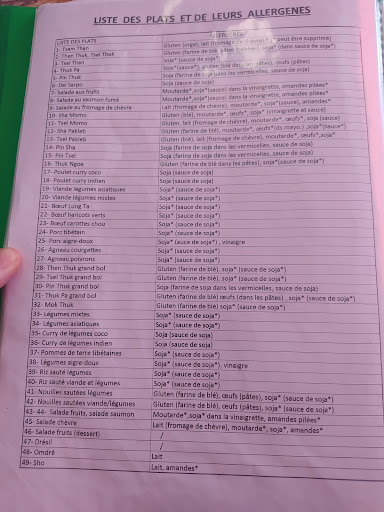 LISTE DES PLATS ET DE LEURS ALLERGENES
LISTE DES PLATS ALLERGENES
1- Tsam Than Gluten (orge), lait (fromage peut être supprimé)
2- Then Thuk, Tsel Thuk Gluten (farine de blé, pâtes fraîches), soja* (dans sauce de soja*)
3- Tsel Then Soja* (sauce de soja*)
4- Thuk Pa Soja* (sauce*), gluten (blé des pâtes), œufs (pâtes)
5- Pin Thuk Soja (farine de soja dans les vermicelles, sauce de soja)
6- Dal Serpo Soja (sauce de soja)
7- Salade aux fruits Moutarde*, soja* (sauce) dans la vinaigrette, amandes pilées
8- Salade au saumon fumé Moutarde*, soja* (sauce) dans la vinaigrette, amandes pilées
9- Salade au fromage de chèvre Lait (fromage de chèvre), moutarde*, soja* (sauce), amandes*
10- Sha Momo Gluten (blé), moutarde*, œufs*, soja* (vinaigrette et sauce)
11- Tsel Momo Gluten, lait (fromage de chèvre), moutarde*, œufs*, soja (sauce)
12- Sha Pakleb Gluten (farine de blé), moutarde*, œufs*(ds mayo.) ,soja*(sauce*)
13- Tsel Pakleb Gluten (blé), lait (fromage de chèvre), moutarde*, œufs*,soja*
14- Pin Sha Soja (farine de soja dans les vermicelles, sauce de soja)
15- Pin Tsel Soja (farine de soja dans les vermicelles, sauce de soja)
16- Thuk Ngoe Gluten (farine de blé dans les pâtes), soja*(sauce de soja*)
17- Poulet curry coco Soja (sauce de soja)
18- Poulet curry indien Soja (sauce de soja)
19- Viande légumes asiatiques Soja* (sauce de soja*)
20- Viande légumes mixtes Soja* (sauce de soja*)
21- Bœuf Lung Ta Soja* (sauce de soja*)
22- Bœuf haricots verts Soja* (sauce de soja*)
23- Bœuf carottes chou Soja* (sauce de soja*)
24- Porc tibétain Soja* (sauce de soja*)
25- Porc aigre-doux Soja* (sauce de soja*) , vinaigre
26- Agneau courgettes Soja* (sauce de soja*)
27- Agneau poivrons Soja* (sauce de soja*)
28- Then Thuk grand bol Gluten (farine de blé), soja* (sauce de soja*)
29- Tsel Thuk grand bol Gluten (farine de blé), soja* (sauce de soja*)
30- Pin Thuk grand bol Soja (farine de soja dans les vermicelles, sauce de soja)
31- Thuk Pa grand bol Gluten (farine de blé) œufs (dans les pâtes) , soja* (sauce de soja*)
32- Mok Thuk Gluten (farine de blé) soja* (sauce de soja*)
33- Légumes mixtes Soja* (sauce de soja*)
34- Légumes asiatiques Soja* (sauce de soja*)
35- Curry de légumes coco Soja (sauce de soja)
36- Curry de légumes indien Soja (sauce de soja)
37- Pommes de terre tibétaines Soja* (sauce de soja*)
38- Légumes aigre-doux Soja* (sauce de soja*), vinaigre
39- Riz sauté légumes Soja* (sauce de soja*)
40- Riz sauté viande et légumes Soja* (sauce de soja*)
41- Nouilles sautées légumes Gluten (farine de blé), œufs (pâtes), soja* (sauce de soja*)
42- Nouilles sautées viande/légumes Gluten (farine de blé), œufs (pâtes), soja* (sauce de soja*)
43- 44- Salade fruits, salade saumon Moutarde*,soja* dans la vinaigrette, amandes pilées*
45- Salade chèvre Lait (fromage de chèvre), moutarde*, soja*, amandes*
46- Salade fruits (dessert) /
47- Drésil /
48- Omdré Lait
49- Sho Lait, amandes*